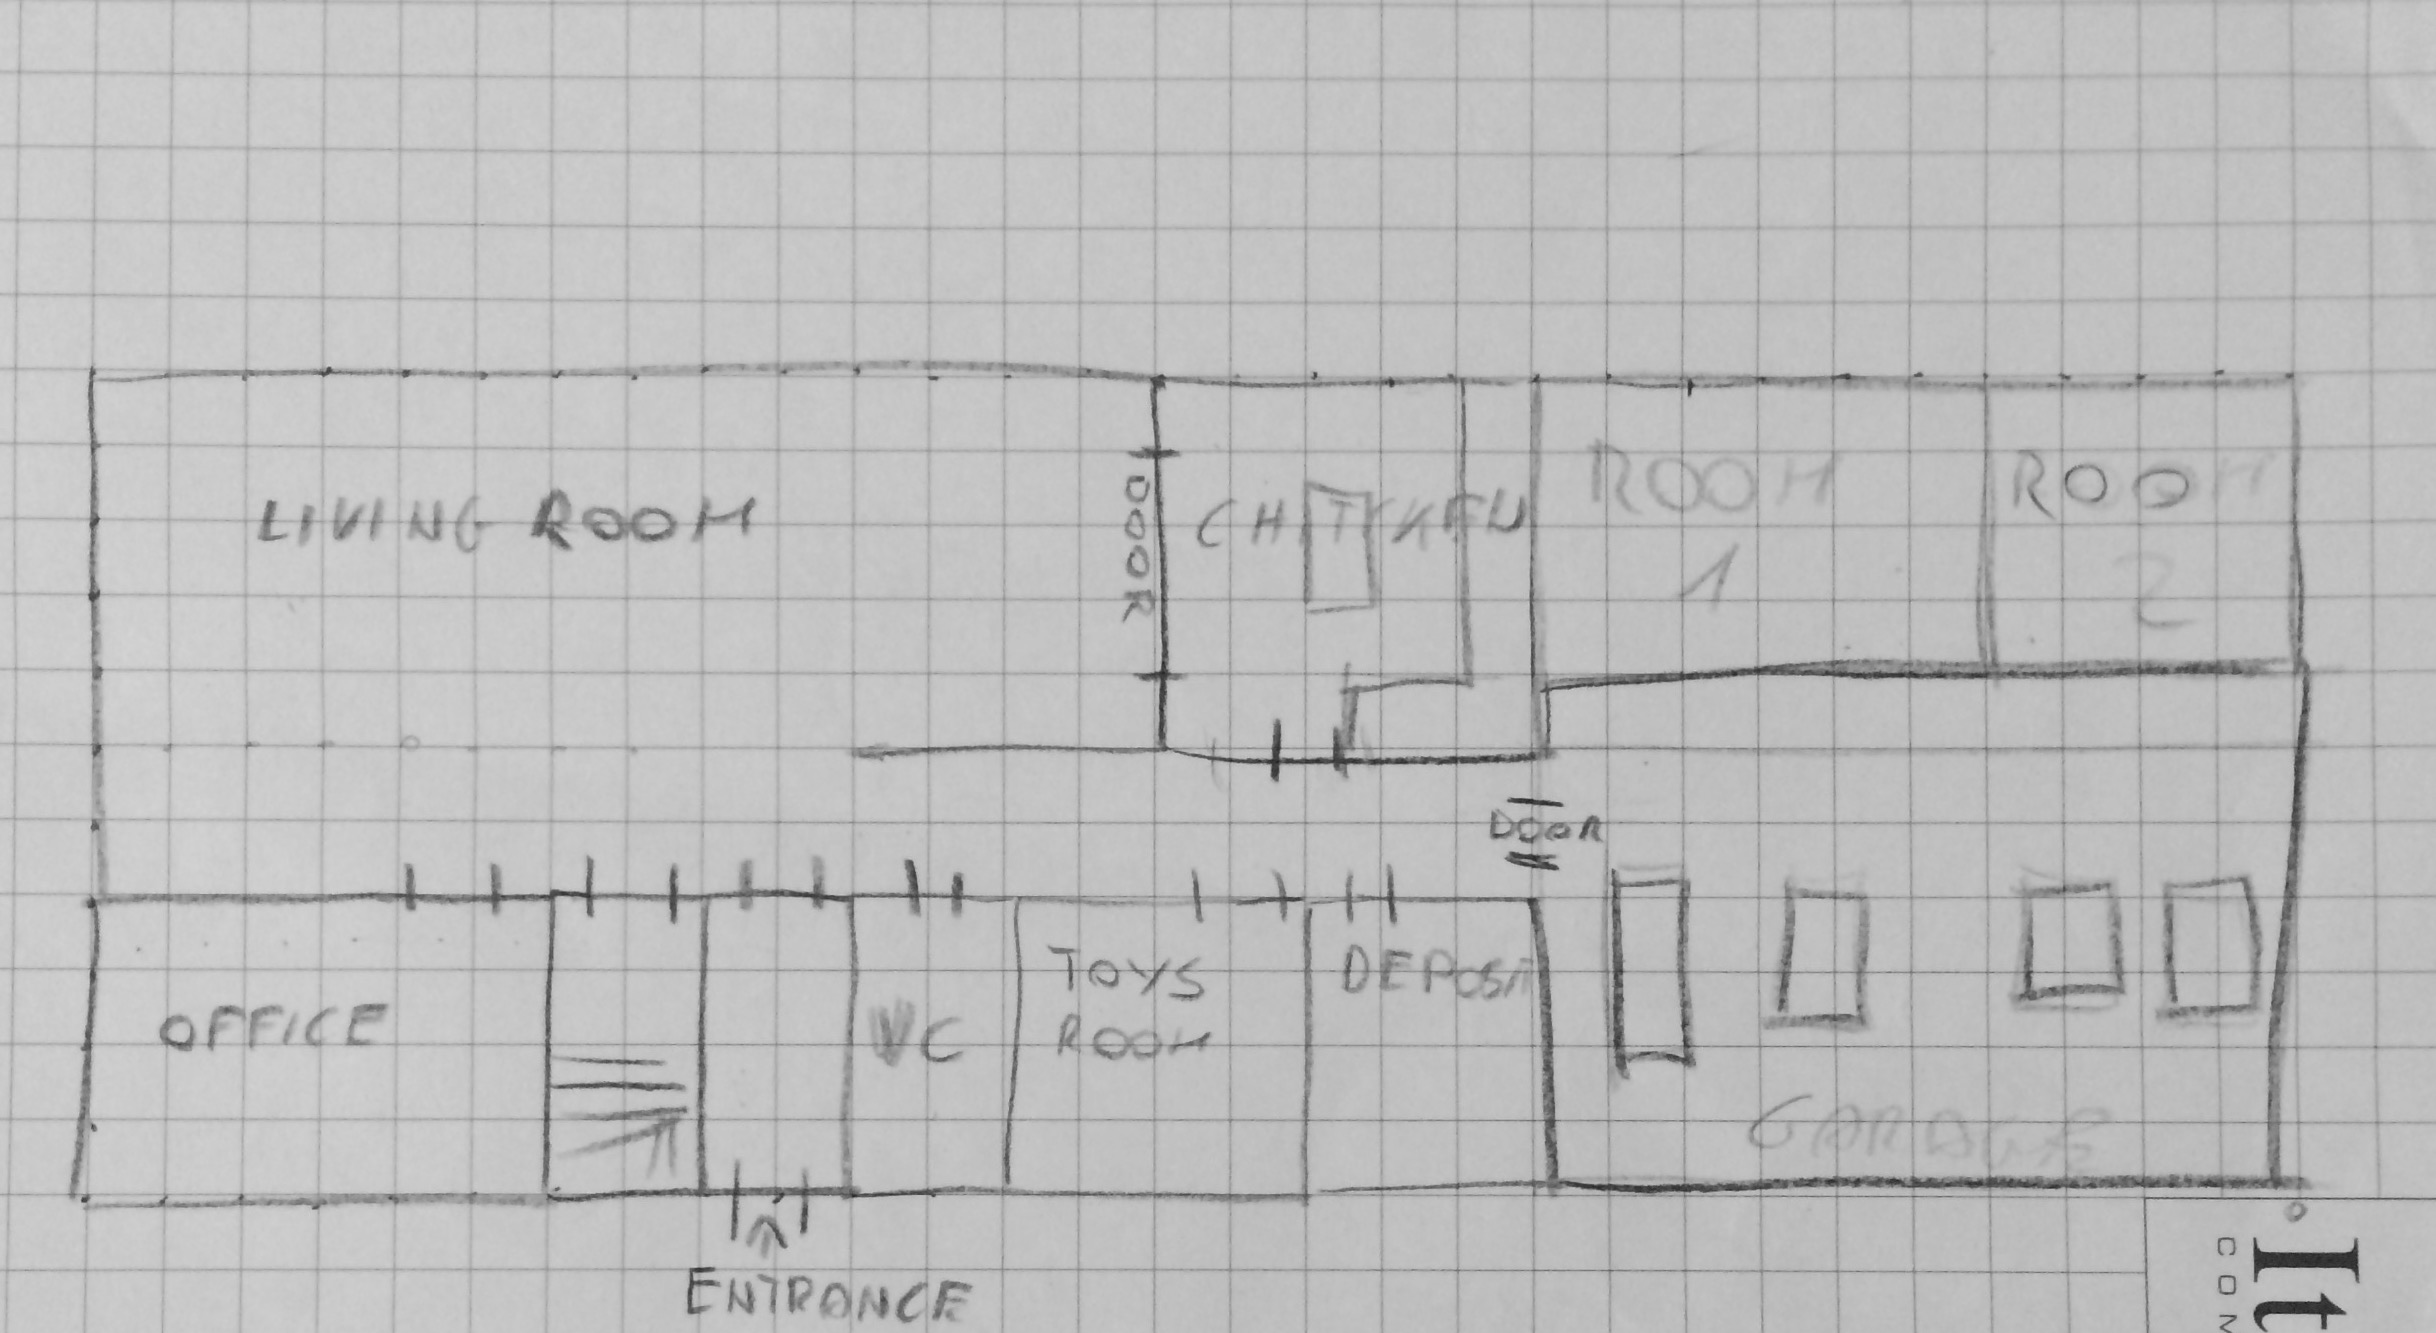 LIVING ROOM
DOOR
CHITKEN
ROOM
1
ROOM
2
DOOR
OFFICE
WC
TOYS
ROOM
DEPOSIT
GARAGE
ENTRANCE
It
COM